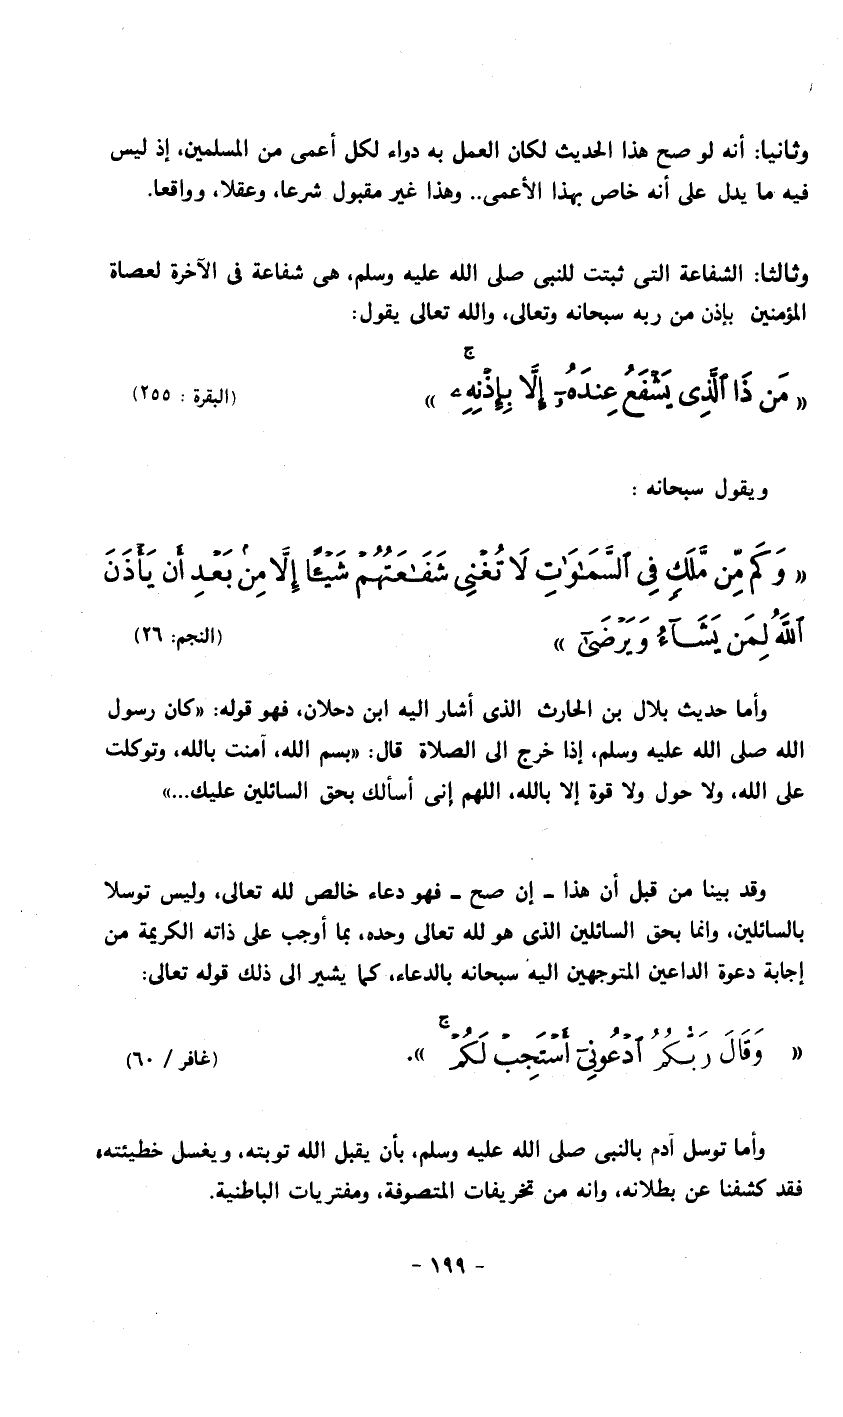 وثانيا: أنه لو صح هذا الحديث لكان العمل به دواء لكل أعمى من المسلمين، إذ ليس
فيه ما يدل على أنه خاص بهذا الأعمى.. وهذا غير مقبول شرعا، وعقلا، وواقعا.
وثالثا: الشفاعة التى ثبتت للنبى صلى الله عليه وسلم، هى شفاعة فى الآخرة لعصاة
المؤمنين بإذن من ربه سبحانه وتعالى، والله تعالى يقول:
« مَن ذَا ٱلَّذِى يَشْفَعُ عِندَهُۥٓ إِلَّا بِإِذْنِهِۦ ۚ » (البقرة : ٢٥٥)
ويقول سبحانه :
« وَكَم مِّن مَّلَكٍ فِى ٱلسَّمَـٰوَٰتِ لَا تُغْنِى شَفَـٰعَتُهُمْ شَيْـًٔا إِلَّا مِنۢ بَعْدِ أَن يَأْذَنَ
ٱللَّهُ لِمَن يَشَآءُ وَيَرْضَىٰٓ » (النجم: ٢٦)
وأما حديث بلال بن الحارث الذى أشار اليه ابن دحلان، فهو قوله: «كان رسول
الله صلى الله عليه وسلم، إذا خرج الى الصلاة قال: «بسم الله، آمنت بالله، وتوكلت
على الله، ولا حول ولا قوة إلا بالله، اللهم إنى أسألك بحق السائلين عليك...»
وقد بينا من قبل أن هذا ـ إن صح ـ فهو دعاء خالص لله تعالى، وليس توسلا
بالسائلين، وانما بحق السائلين الذى هو لله تعالى وحده، بما أوجب على ذاته الكريمة من
إجابة دعوة الداعين المتوجهين اليه سبحانه بالدعاء، كما يشير الى ذلك قوله تعالى:
« وَقَالَ رَبُّكُمُ ٱدْعُونِىٓ أَسْتَجِبْ لَكُمْ ۚ ». (غافر / ٦٠)
وأما توسل آدم بالنبى صلى الله عليه وسلم، بأن يقبل الله توبته، ويغسل خطيئته،
فقد كشفنا عن بطلانه، وانه من تخريفات المتصوفة، ومفتريات الباطنية.
- ١٩٩ -